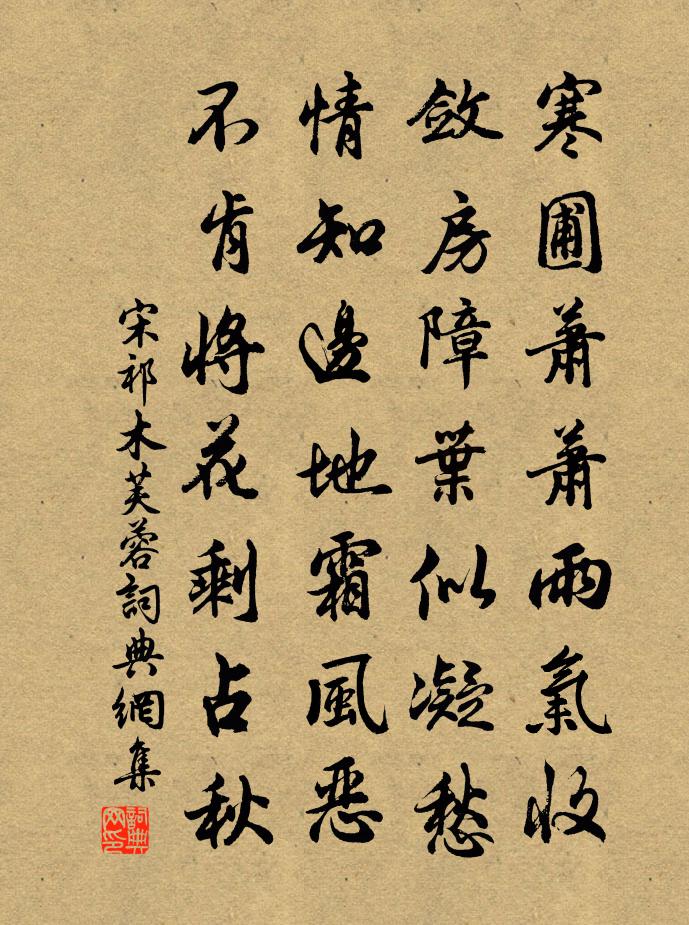 寒圃蕭蕭雨氣收
斂房障葉似凝愁
情知邊地霜風惡
不肯將花剩占秋
宋祁木芙蓉詞典網集
詞典网印